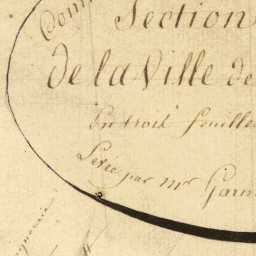 Com
Section
de la Ville de
En trois feuille
Levé par mr Garn